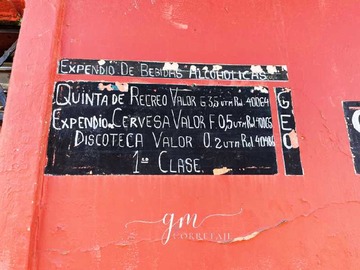 EXPENDIO DE BEBIDAS ALCOHOLICAS
QUINTA DE RECREO VALOR G 3,5 UTM Rol 40064
EXPENDIO CERVESA VALOR F 0,5 UTM Rol 40065
DISCOTECA VALOR O.2 UTM Rol 40486
1RO CLASE.
GEO
gm
CORRETAJE